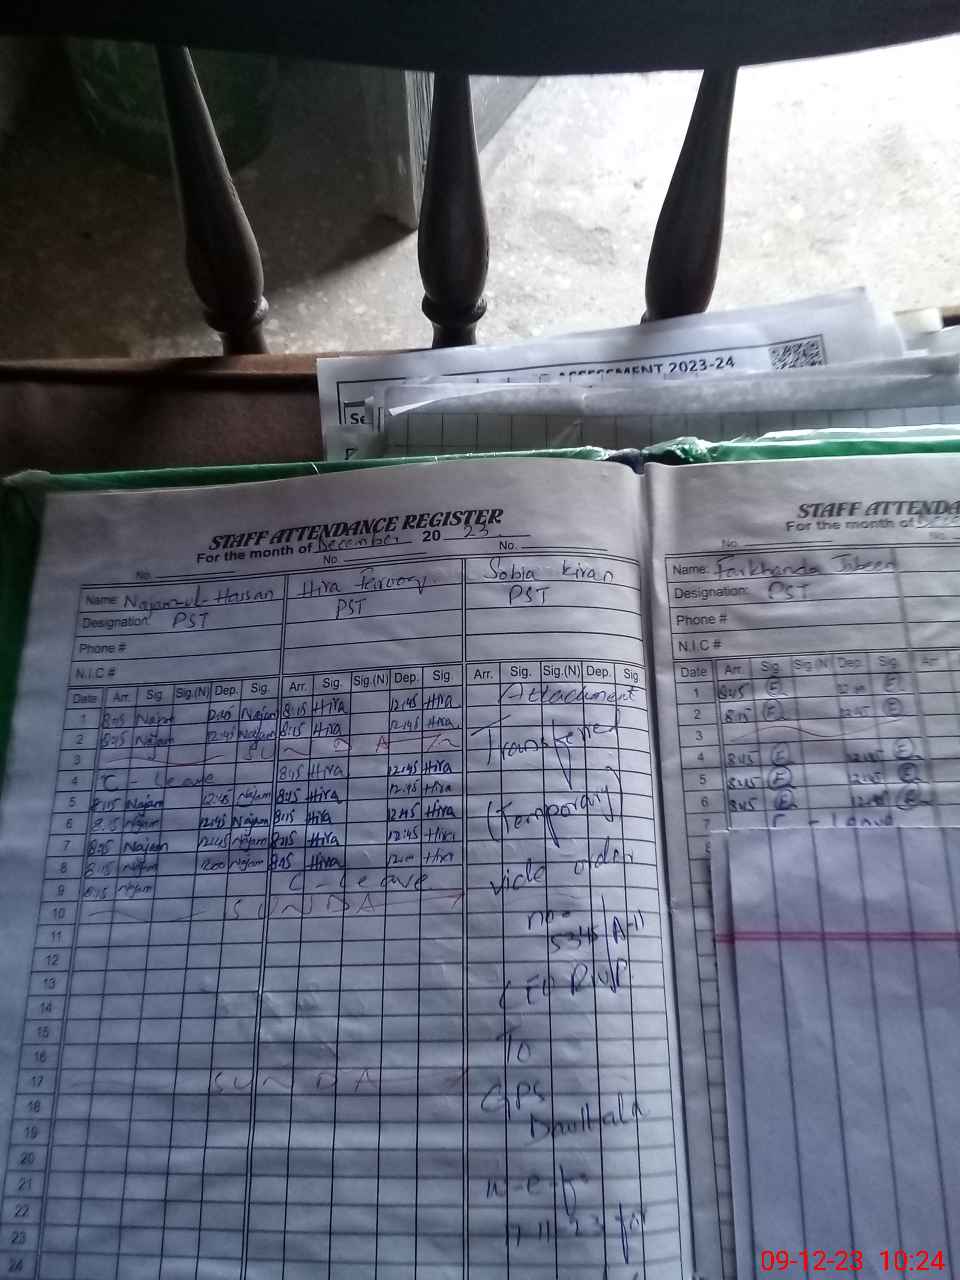 ASSESSMENT 2023-24
Se
STAFF ATTENDANCE REGISTER
For the month of December 20 23
No. No. No.
Name: Najam-ul-Hassan Hira Farooq Sobia Kiran
Designation: PST PST PST
Phone #
N.I.C #
Date Arr. Sig. Sig.(N) Dep. Sig. Arr. Sig. Sig.(N) Dep. Sig. Arr. Sig. Sig.(N) Dep. Sig.
1 8:45 Najam 12:45 Najam 8:45 Hira 12:45 Hira
2 8:45 Najam 12:45 Najam 8:45 Hira 12:45 Hira
3
4 C - Leave 8:45 Hira 12:45 Hira
5 8:45 Najam 12:45 Najam 8:45 Hira 12:45 Hira
6 8:45 Najam 12:45 Najam 8:45 Hira 12:45 Hira
7 8:45 Najam 12:45 Najam 8:45 Hira 12:45 Hira
8 8:45 Najam 12:00 Najam 8:45 Hira Hira
9 8:45 Najam C - Leave
10 SUNDA
11
12
13
14
15
16
17 SUNDA
18
19
20
21
22
23
24
Attachment
Transfered
(Temporary)
vide order
no.
5345/A-11
To
GPS
w-e-f-
17-11-23 for
STAFF ATTENDA
For the month of Dece
No. No.
Name: Farkhanda Jabeen
Designation: PST
Phone #
N.I.C #
Date Arr. Sig. Sig.(N) Dep. Sig. Arr.
1 8:45 E 12:45 E
2 8:45 E 12:45 E
3
4 8:45 E 12:45 E
5 8:45 E 12:45 E
6 8:45 E 12:45 E
7 C - Leave
8
09-12-23 10:24